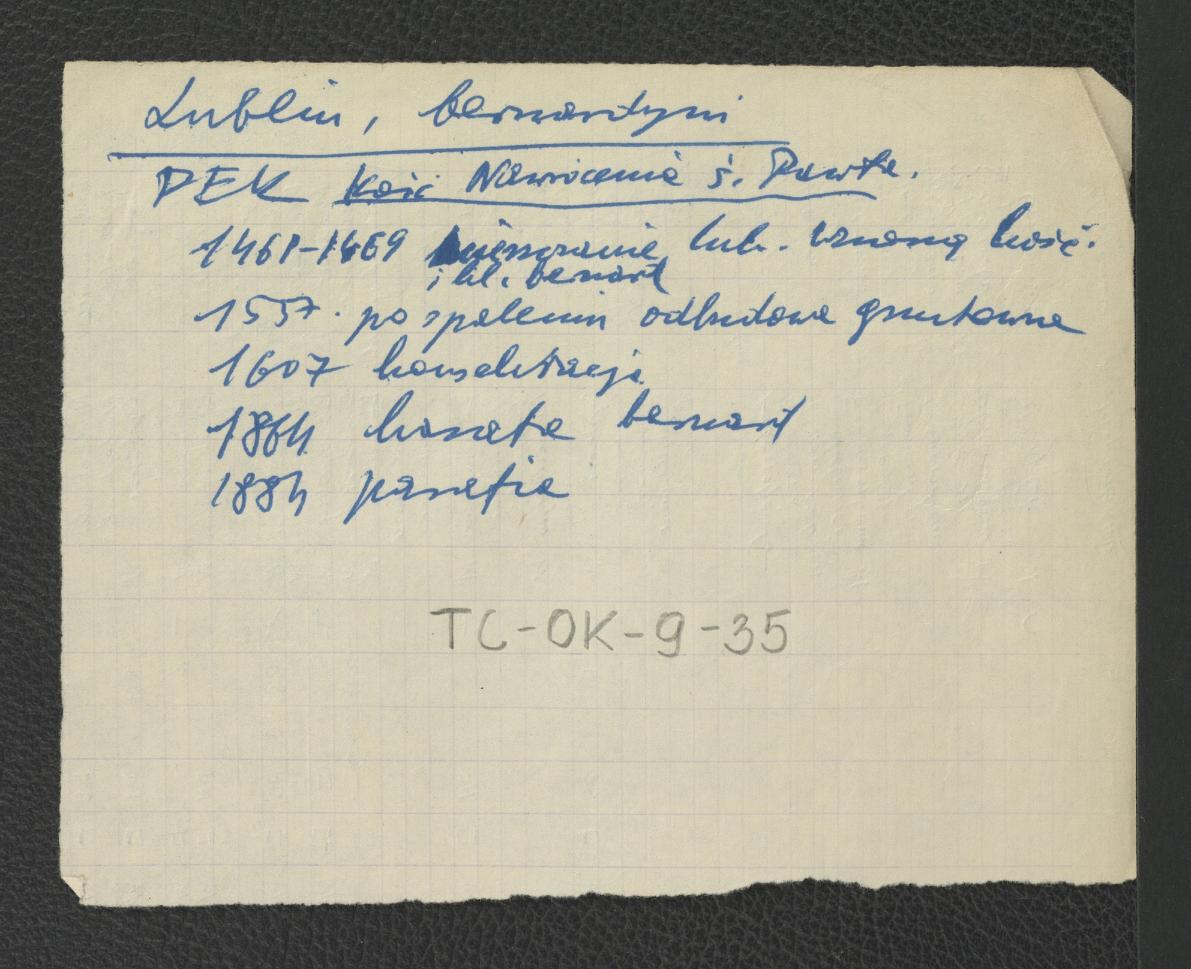 Lublin, bernardyni
PEK Kość Nawrócenia ś. Pawła.
1461-1469 mieszczanie lub. wznoszą kość.
i kl. bernard
1557. po spaleniu odbudowa gruntowna
1607 konsekracja
1864 kasata bernard
1884 parafia
TC-OK-9-35